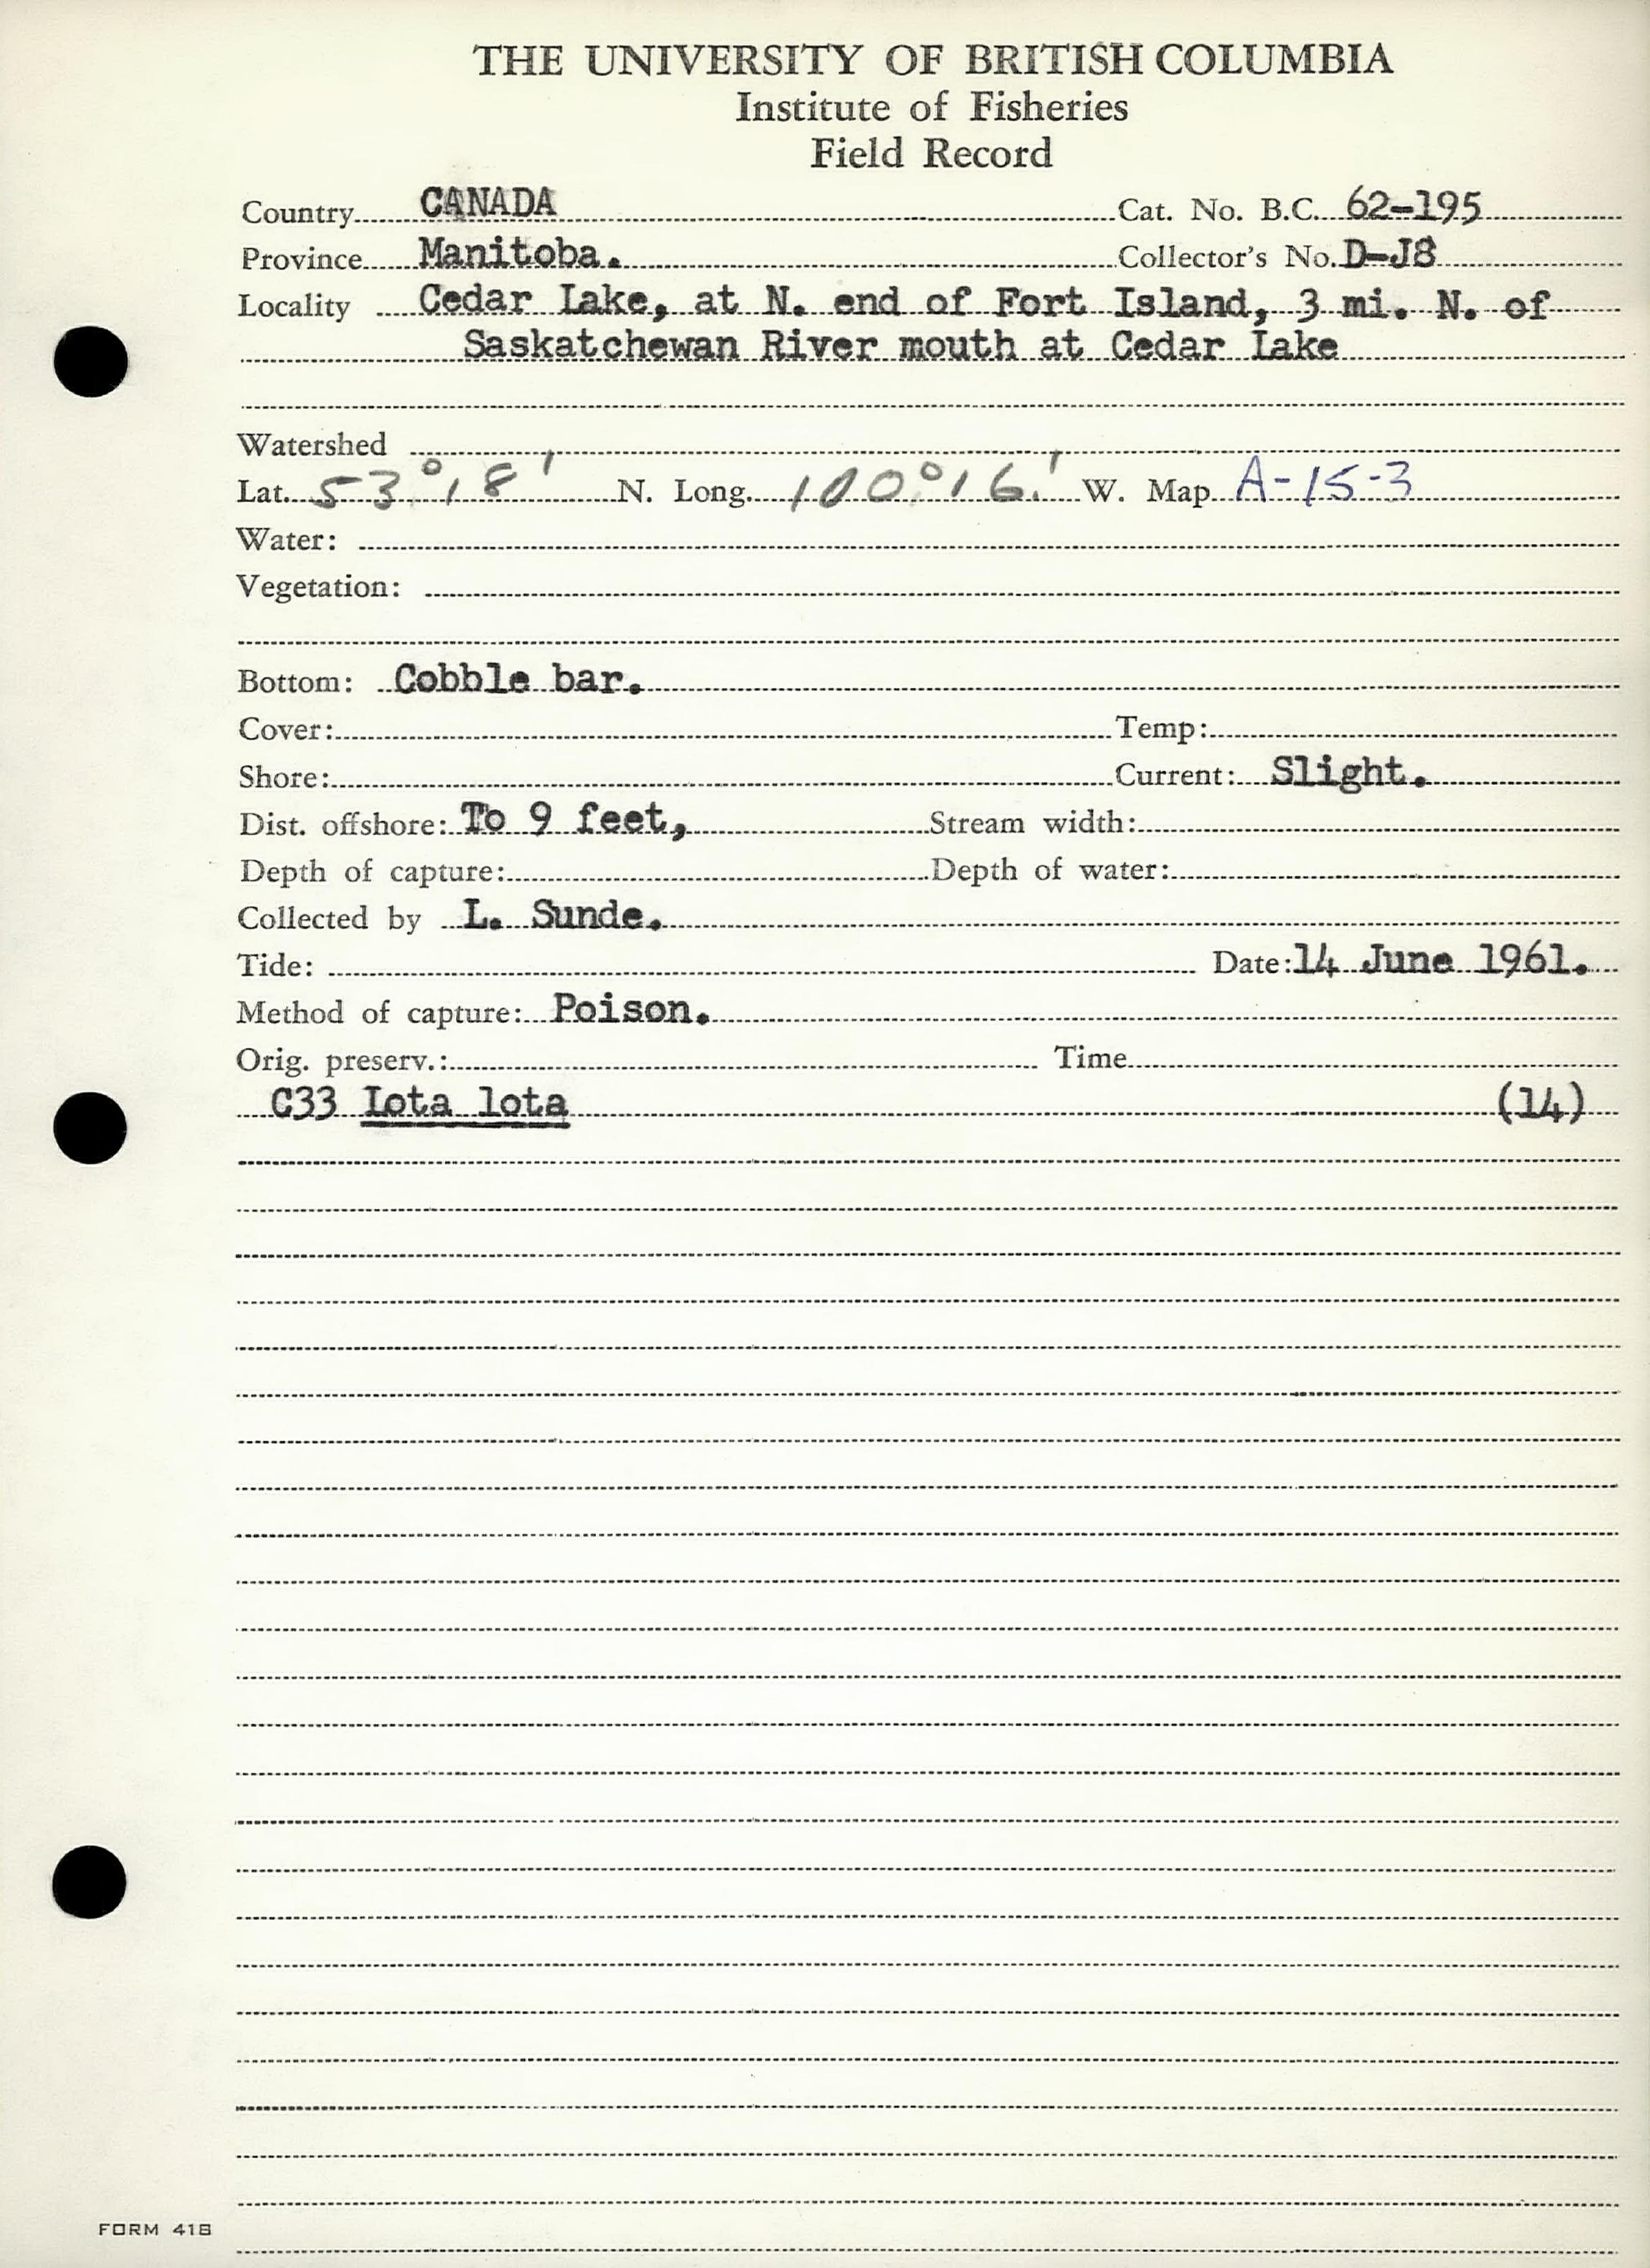 THE UNIVERSITY OF BRITISH COLUMBIA
Institute of Fisheries
Field Record
Country CANADA Cat. No. B.C. 62-195
Province Manitoba. Collector's No. D-J8
Locality Cedar Lake, at N. end of Fort Island, 3 mi. N. of
Saskatchewan River mouth at Cedar Lake
Watershed
Lat. 53°18' N. Long. 100°16' W. Map A-15-3
Water:
Vegetation:
Bottom: Cobble bar.
Cover: Temp:
Shore: Current: Slight.
Dist. offshore: To 9 feet, Stream width:
Depth of capture: Depth of water:
Collected by L. Sunde.
Tide: Date: 14 June 1961.
Method of capture: Poison.
Orig. preserv.: Time
C33 Lota lota (14)
FORM 418